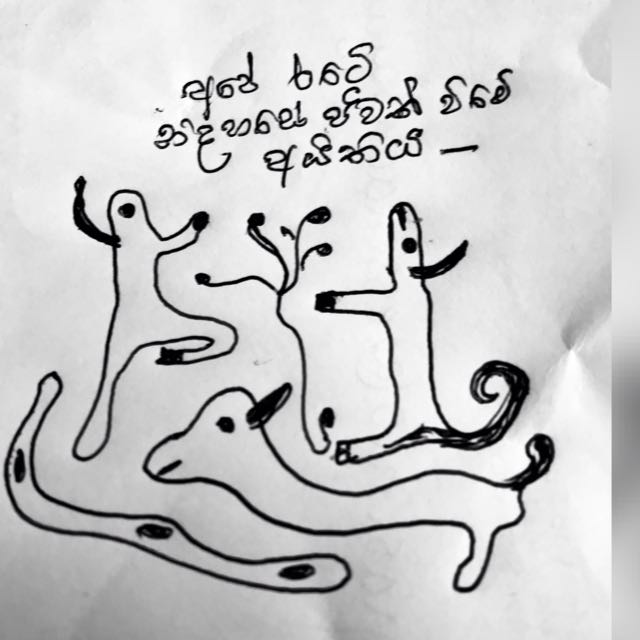 අපේ රටේ
නිදහසේ ජීවත් වීමේ
අයිතියයි —